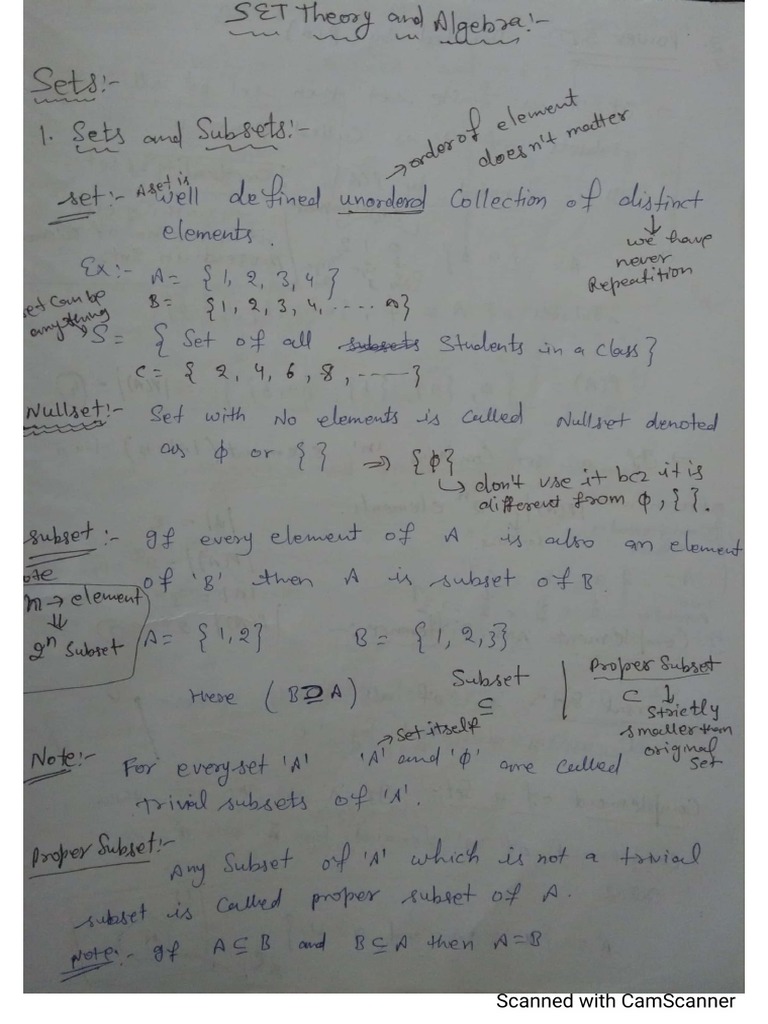 SET Theory and Algebra:-
Sets:-
1. Sets and Subsets:-
→ order of element
doesn't matter
set:- A set is well defined unorderd Collection of distinct
elements.
↓
we have
never
Repeatition
Ex:- A = {1, 2, 3, 4}
B = {1, 2, 3, 4, ..... ∞}
set can be
anything
S = { Set of all subsets Students in a class}
C = { 2, 4, 6, 8, -----}
Nullset:- Set with No elements is called Nullset denoted
as ϕ or { } ⇒ {ϕ}
↳ don't use it bcz it is
different from ϕ, { }.
subset:- If every element of A is also an element
of 'B' then A is subset of B.
ote
n → element
⇓
2ⁿ subset
A = {1,2} B = {1, 2, 3}
Here (B⊇A)
Subset
⊆
Proper Subset
⊂ ↓
strictly
smaller than
original
set
→ set itself
Note:- For every set 'A' 'A' and 'ϕ' are called
trival subsets of 'A'.
Proper Subset:-
Any Subset of 'A' which is not a trival
subset is called proper subset of A.
Note:- If A⊆B and B⊆A then A=B
Scanned with CamScanner